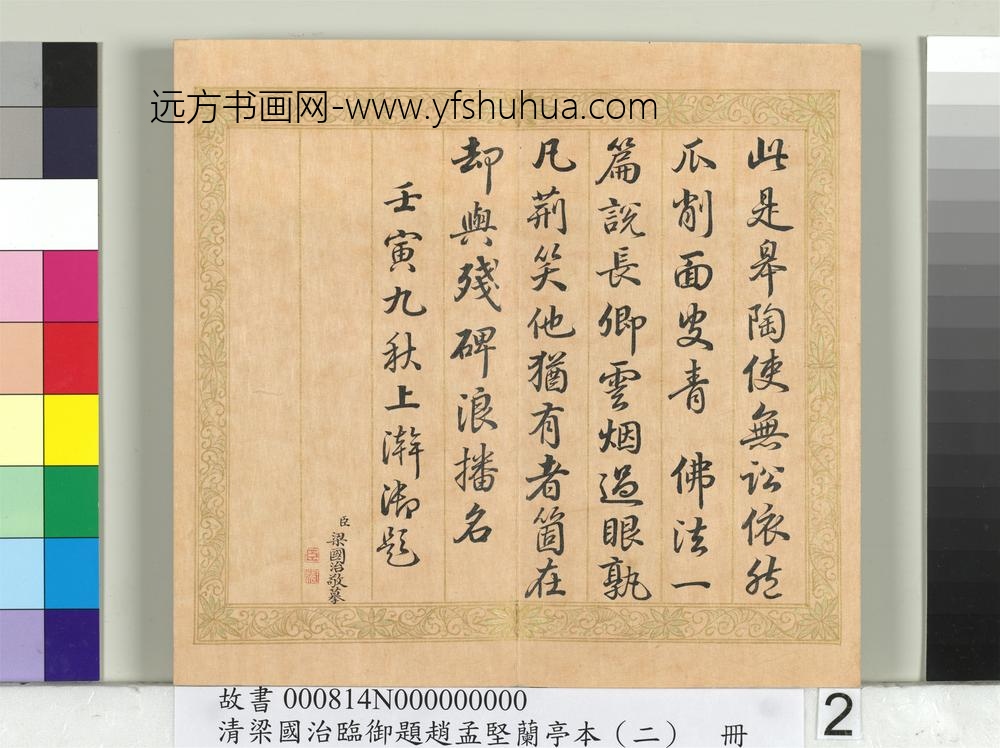 远方书画网-www.yfshuhua.com
此是皋陶使無訟依然
瓜削面皮青 佛法一
篇說長卿雲烟過眼孰
凡荊笑他猶有者箇在
却與殘碑浪播名
壬寅九秋上澣御題
臣梁國治敬摹
故書 000814N000000000
清梁國治臨御題趙孟堅蘭亭本(二) 冊
2